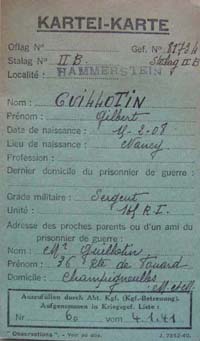 KARTEI-KARTE
Oflag N° Gef. N°
Stalag N° II.B. Stalag II.B
Localité : HAMMERSTEIN
Nom : GUILLOTIN
Prénom : Gilbert
Date de naissance : 11-2-08
Lieu de naissance : Nancy
Profession :
Dernier domicile du prisonnier de guerre :
Grade militaire : Sergent
Unité : R.I.
Adresse des proches parents ou d'un ami du
prisonnier de guerre :
Nom : Guillotin
Prénom : 36 Rte de
Domicile : Champigneulles
Auszufüllen durch Abt. Kgf. (Kgf.-Betreuung).
Aufgenommen in Kriegsgef. Liste :
Nr. 60 vom 4.1.41
"Observations". - Voir au dos. J. 7812-40.